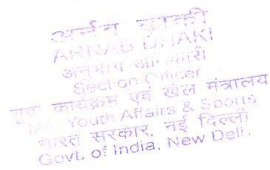 अर्नब ढाकी
ARNAB DHAKI
अनुभाग अधिकारी
Section Officer
कार्यक्रम एवं खेल मंत्रालय
Youth Affairs & Sports
भारत सरकार, नई दिल्ली
Govt. of India, New Delhi